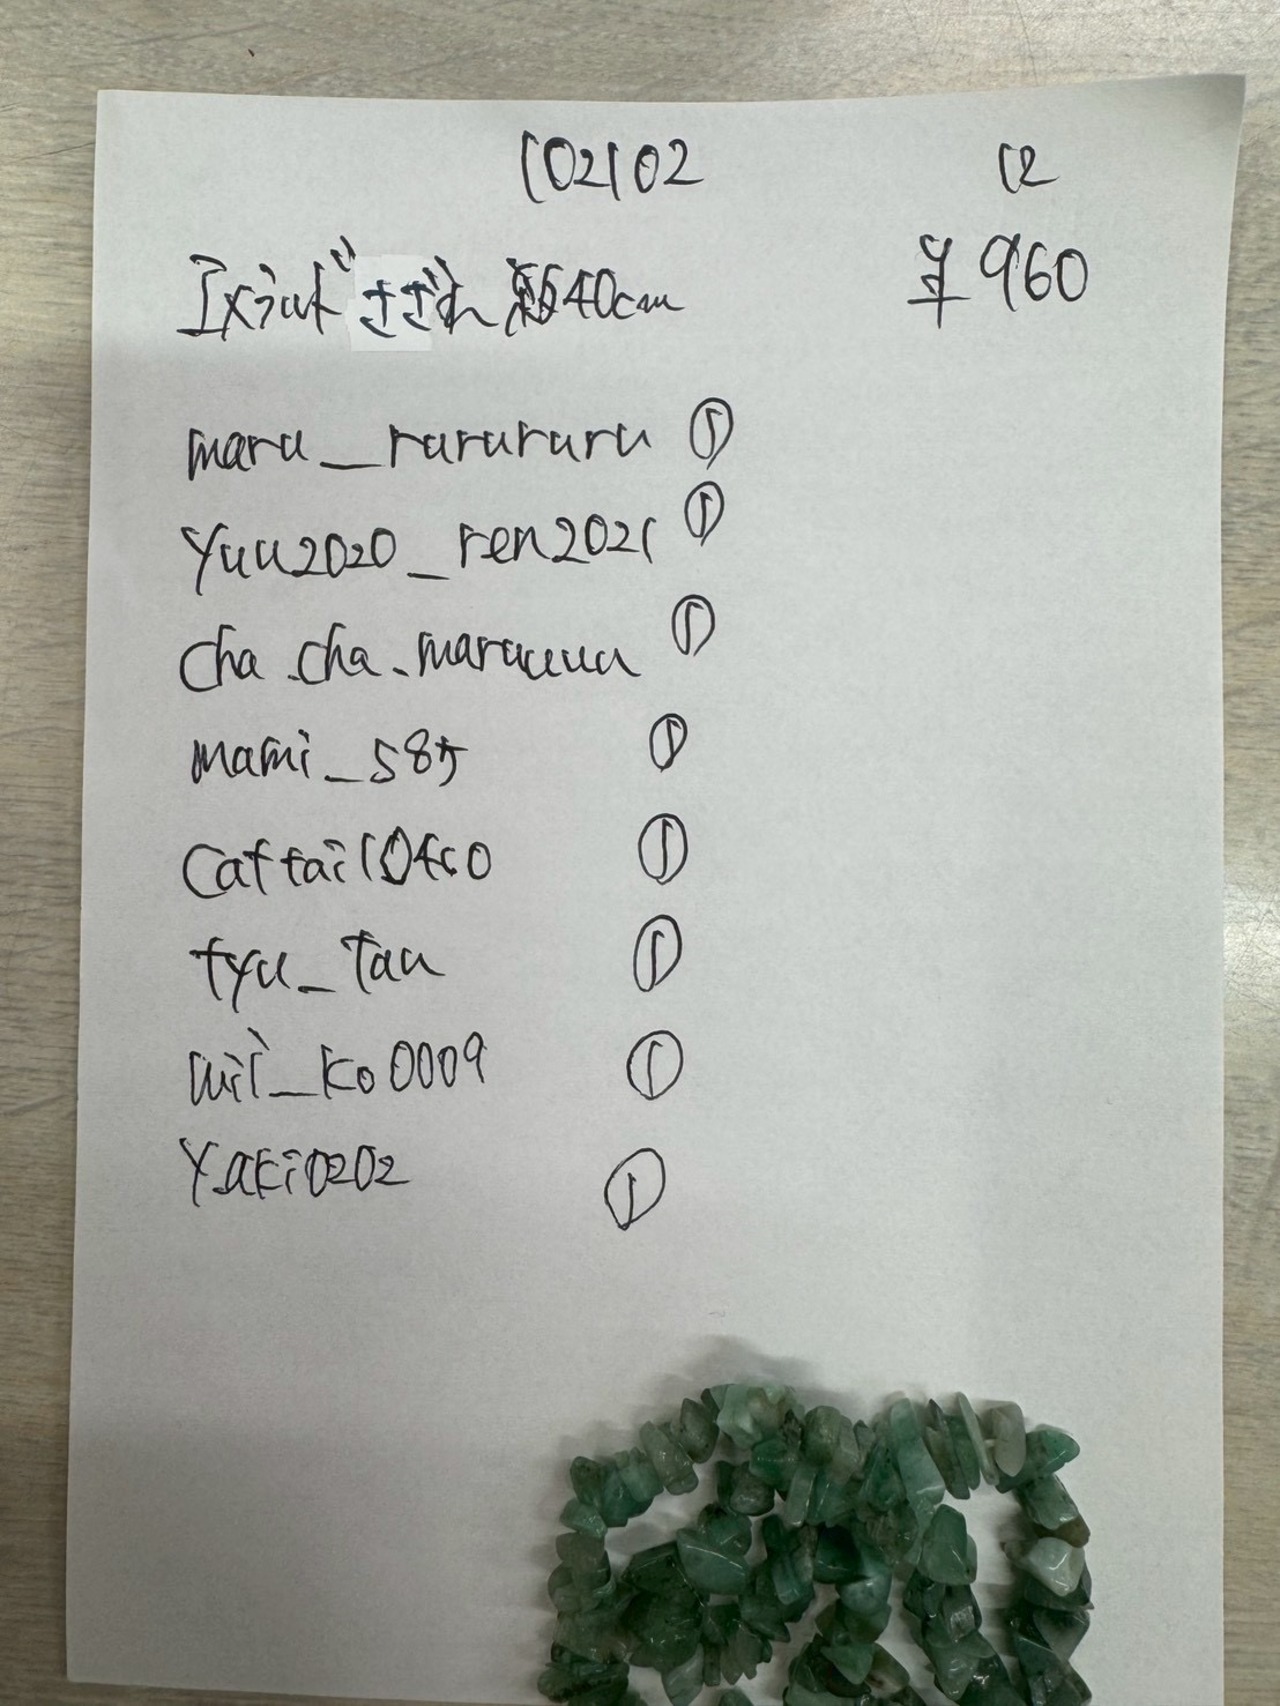 102102 12
エメラルド さざれ 約40cm ¥960
maru_rurururu ①
yuu2020_ren2021 ①
cha.cha.maruuuu ①
mami_585 ①
①
tyu_tau ①
mii_ko0009 ①
yaki0202 ①